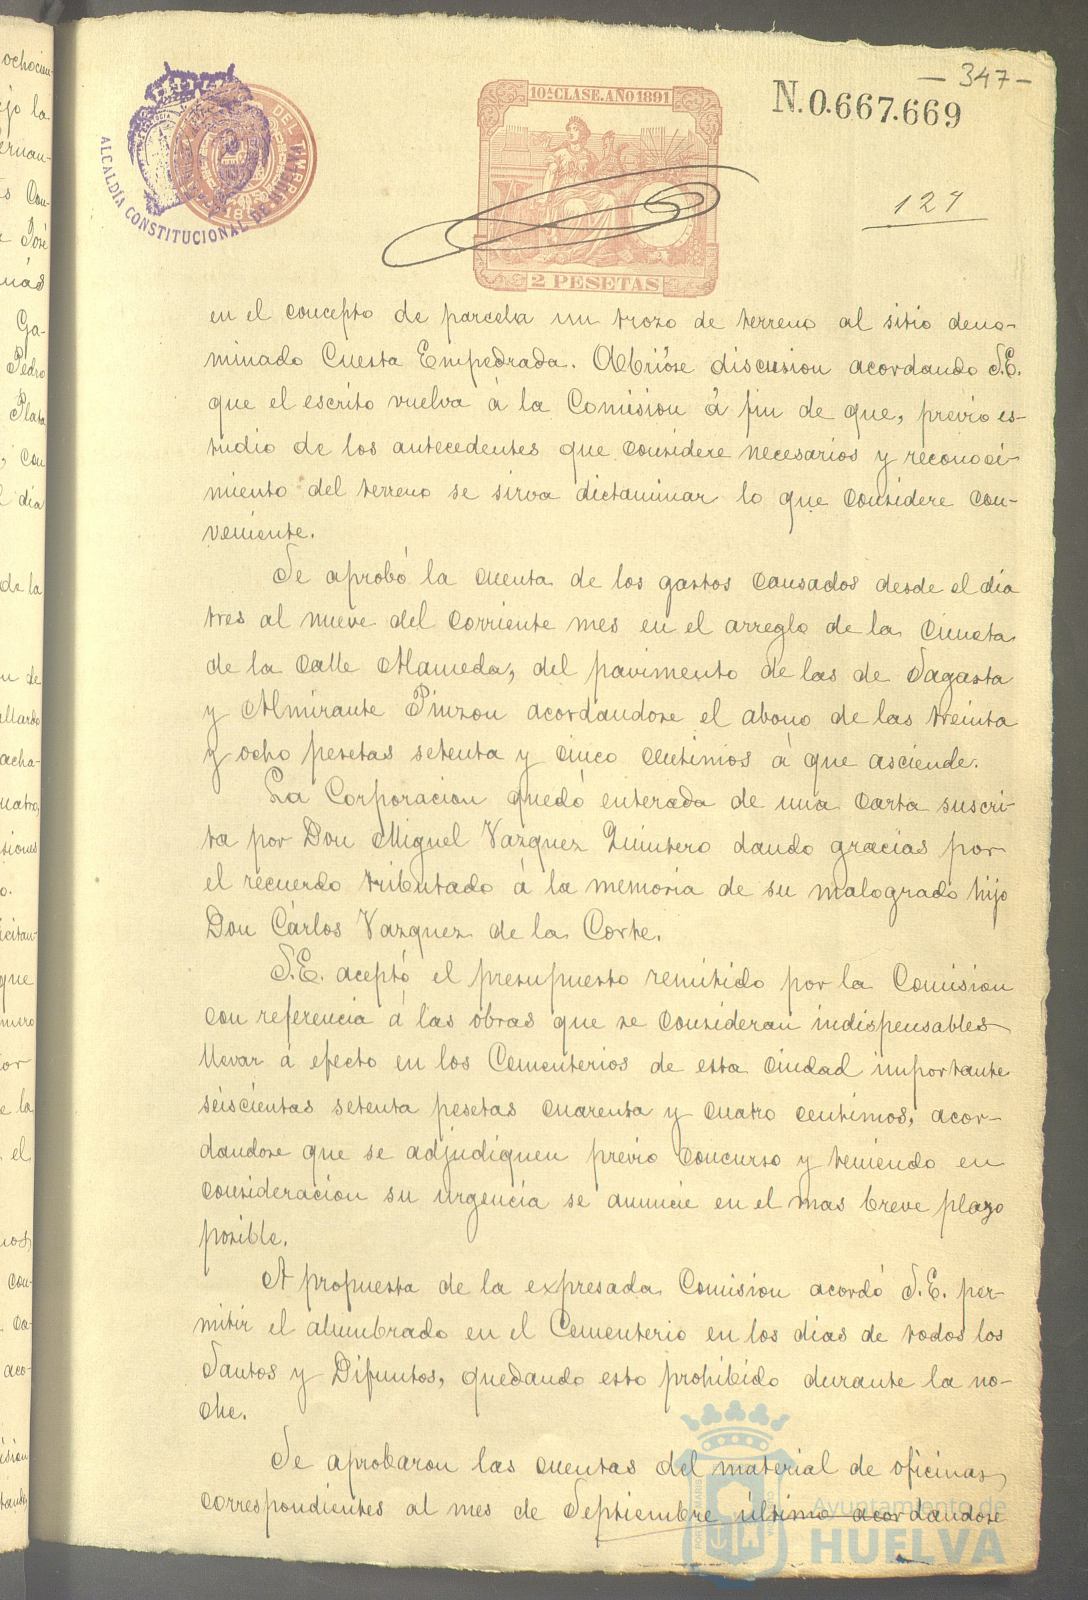 - 347 -
N.0.667.669
10ª CLASE. AÑO 1891
2 PESETAS
ALCALDÍA CONSTITUCIONAL DE HUELVA
127
en el concepto de parcela un trozo de terreno al sitio deno-
minado Cuesta Empedrada. Abrióse discusion acordando S.E.
que el escrito vuelva á la Comision á fin de que, previo es-
tudio de los antecedentes que considere necesarios y reconoci-
miento del terreno se sirva dictaminar lo que considere con-
veniente.
Se aprobó la cuenta de los gastos causados desde el dia
tres al nueve del corriente mes en el arreglo de la cuneta
de la calle Alameda, del pavimento de las de Sagasta
y Almirante Pinzon acordandose el abono de las treinta
y ocho pesetas setenta y cinco centimos á que asciende.
La Corporacion quedó enterada de una carta suscri-
ta por Don Miguel Vazquez Quintero dando gracias por
el recuerdo tributado á la memoria de su malogrado hijo
Don Cárlos Vazquez de la Corte.
S.E. aceptó el presupuesto remitido por la Comision
con referencia á las obras que se consideran indispensables
llevar á efecto en los Cementerios de esta Ciudad importante
seiscientas setenta pesetas cuarenta y cuatro centimos, acor-
dandose que se adjudiquen previo concurso y teniendo en
consideracion su urgencia se anuncie en el mas breve plazo
posible.
A propuesta de la expresada Comision acordó S.E. per-
mitir el alumbrado en el Cementerio en los dias de todos los
Santos y Difuntos, quedando esto prohibido durante la no-
che.
Se aprobaron las cuentas del material de oficinas
correspondientes al mes de Septiembre último acordandose
Ayuntamiento de
HUELVA